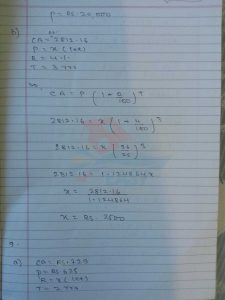 P = Rs. 20,000
b)
CA = 2812.16
P = x (let)
R = 4%
T = 3 yrs
CA = P (1 + R/100)^T
2812.16 = x (1 + 4/100)^3
2812.16 = x (26/25)^3
2812.16 = 1.124864x
x = 2812.16/1.124864
x = Rs. 2500
9.
a) CA = Rs. 729
P = Rs. 625
R = x (let)
T = 2 yrs